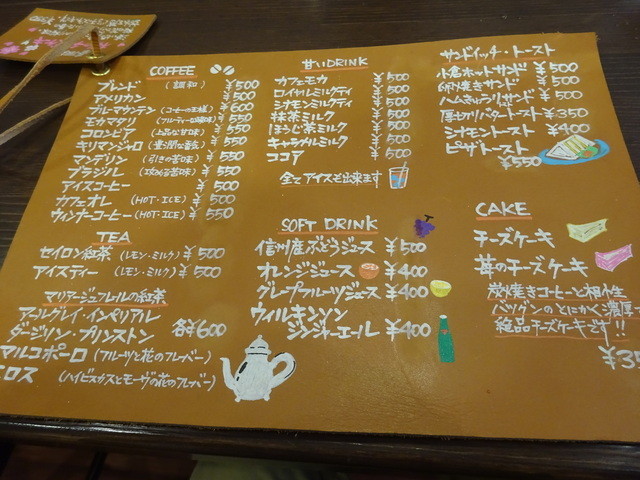 COFFEE
ブレンド (調和) ¥500
アメリカン ¥500
ブルーマウンテン (コーヒーの王様) ¥600
モカマタリ ¥550
コロンビア (上品な甘味) ¥550
キリマンジャロ ¥550
マンデリン ¥550
ブラジル ¥550
アイスコーヒー ¥500
カフェオレ (HOT・ICE) ¥500
ウィンナーコーヒー (HOT・ICE) ¥550
TEA
セイロン紅茶 (レモン・ミルク) ¥500
アイスティー (レモン・ミルク) ¥500
マリアージュフレールの紅茶
アールグレイ・インペリアル
ダージリン・プリンストン 各¥600
マルコポーロ (フルーツと花のフレーバー)
ロス (ハイビスカスとモーヴの花のフレーバー)
甘いDRINK
カフェモカ ¥500
ロイヤルミルクティ ¥500
シナモンミルクティ ¥500
抹茶ミルク ¥500
ほうじ茶ミルク ¥500
キャラメルミルク ¥500
ココア ¥500
全てアイスも出来ます
SOFT DRINK
信州産ぶどうジュース ¥500
オレンジジュース ¥400
グレープフルーツジュース ¥400
ウィルキンソン
ジンジャーエール ¥400
サンドイッチ・トースト
小倉ホットサンド ¥500
卵焼きサンド ¥500
ハムきゅうりサンド ¥500
厚切りバタートースト ¥350
シナモントースト ¥400
ピザトースト
¥550
CAKE
チーズケーキ
苺のチーズケーキ
炭焼きコーヒーと相性
バツグンのとにかく濃厚
絶品チーズケーキです!!